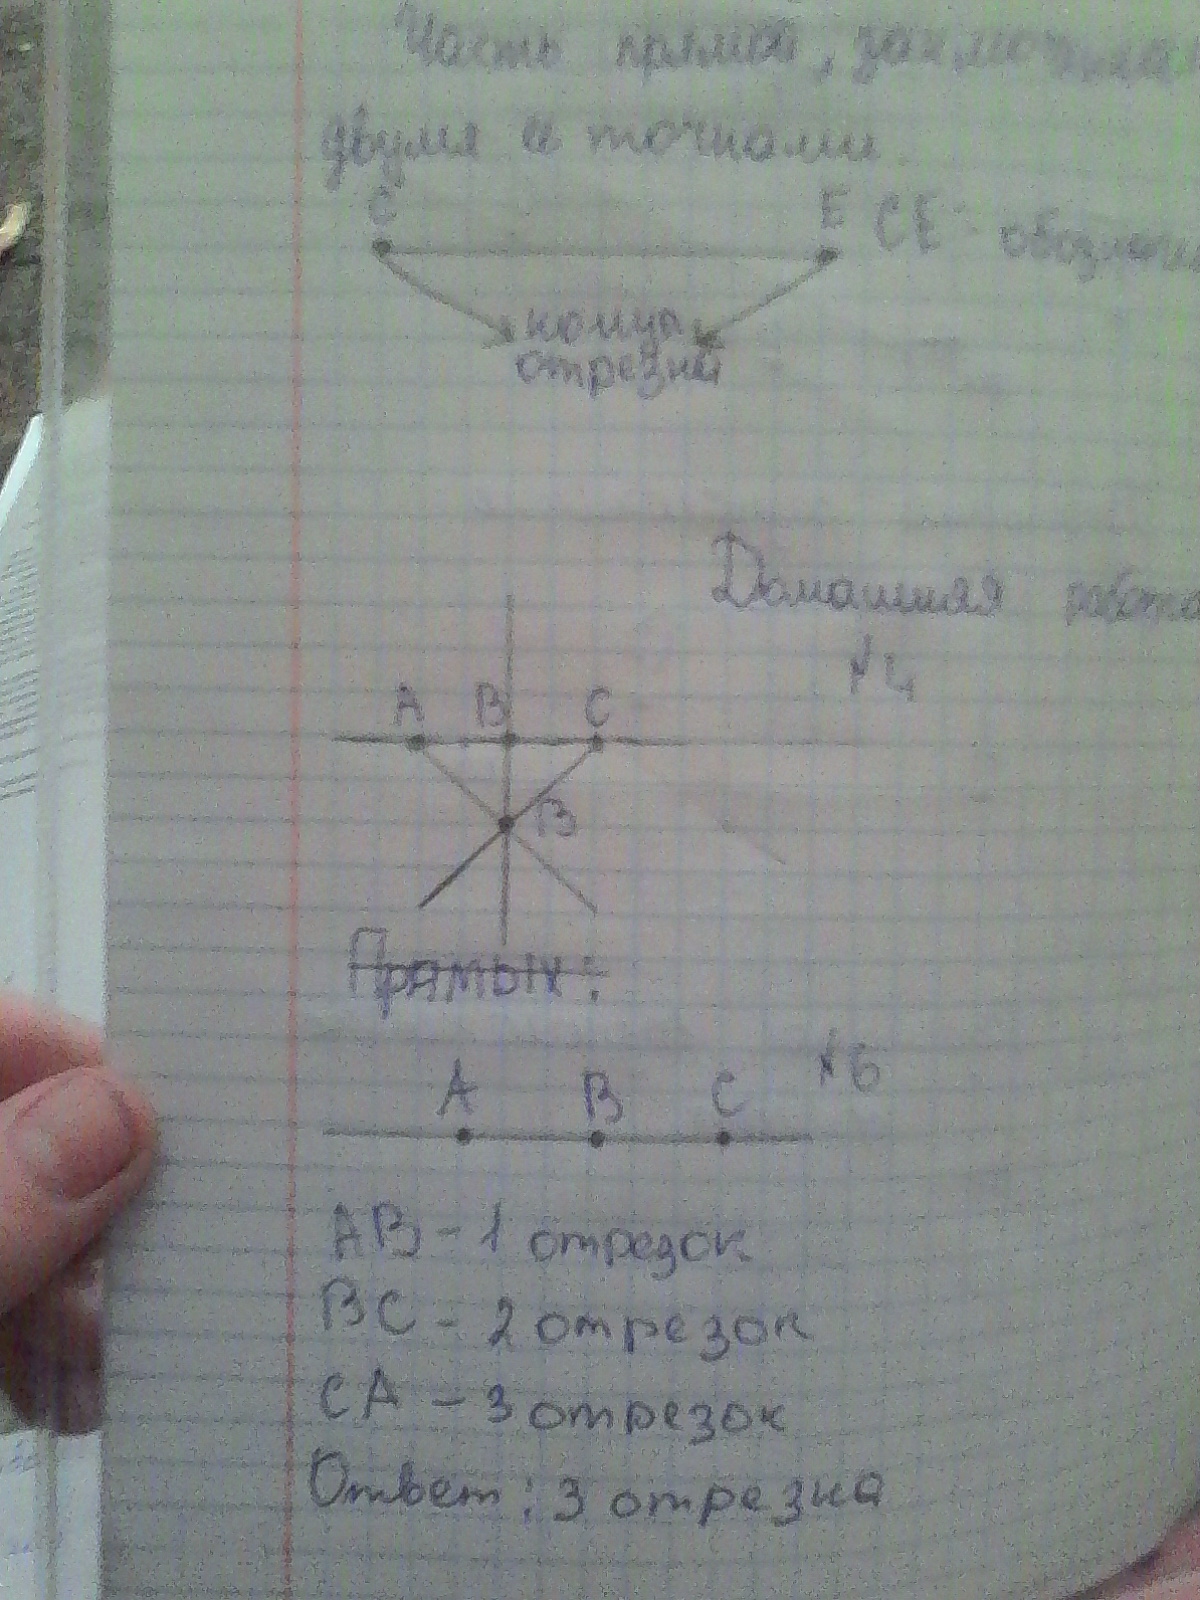 Часть прямой,
двумя точками.
C E CE - обозначе
концы
отрезка
Домашняя работа
№4
A B C
B
Прямых:
№6
A B C
AB - 1 отрезок
BC - 2 отрезок
CA - 3 отрезок
Ответ: 3 отрезка